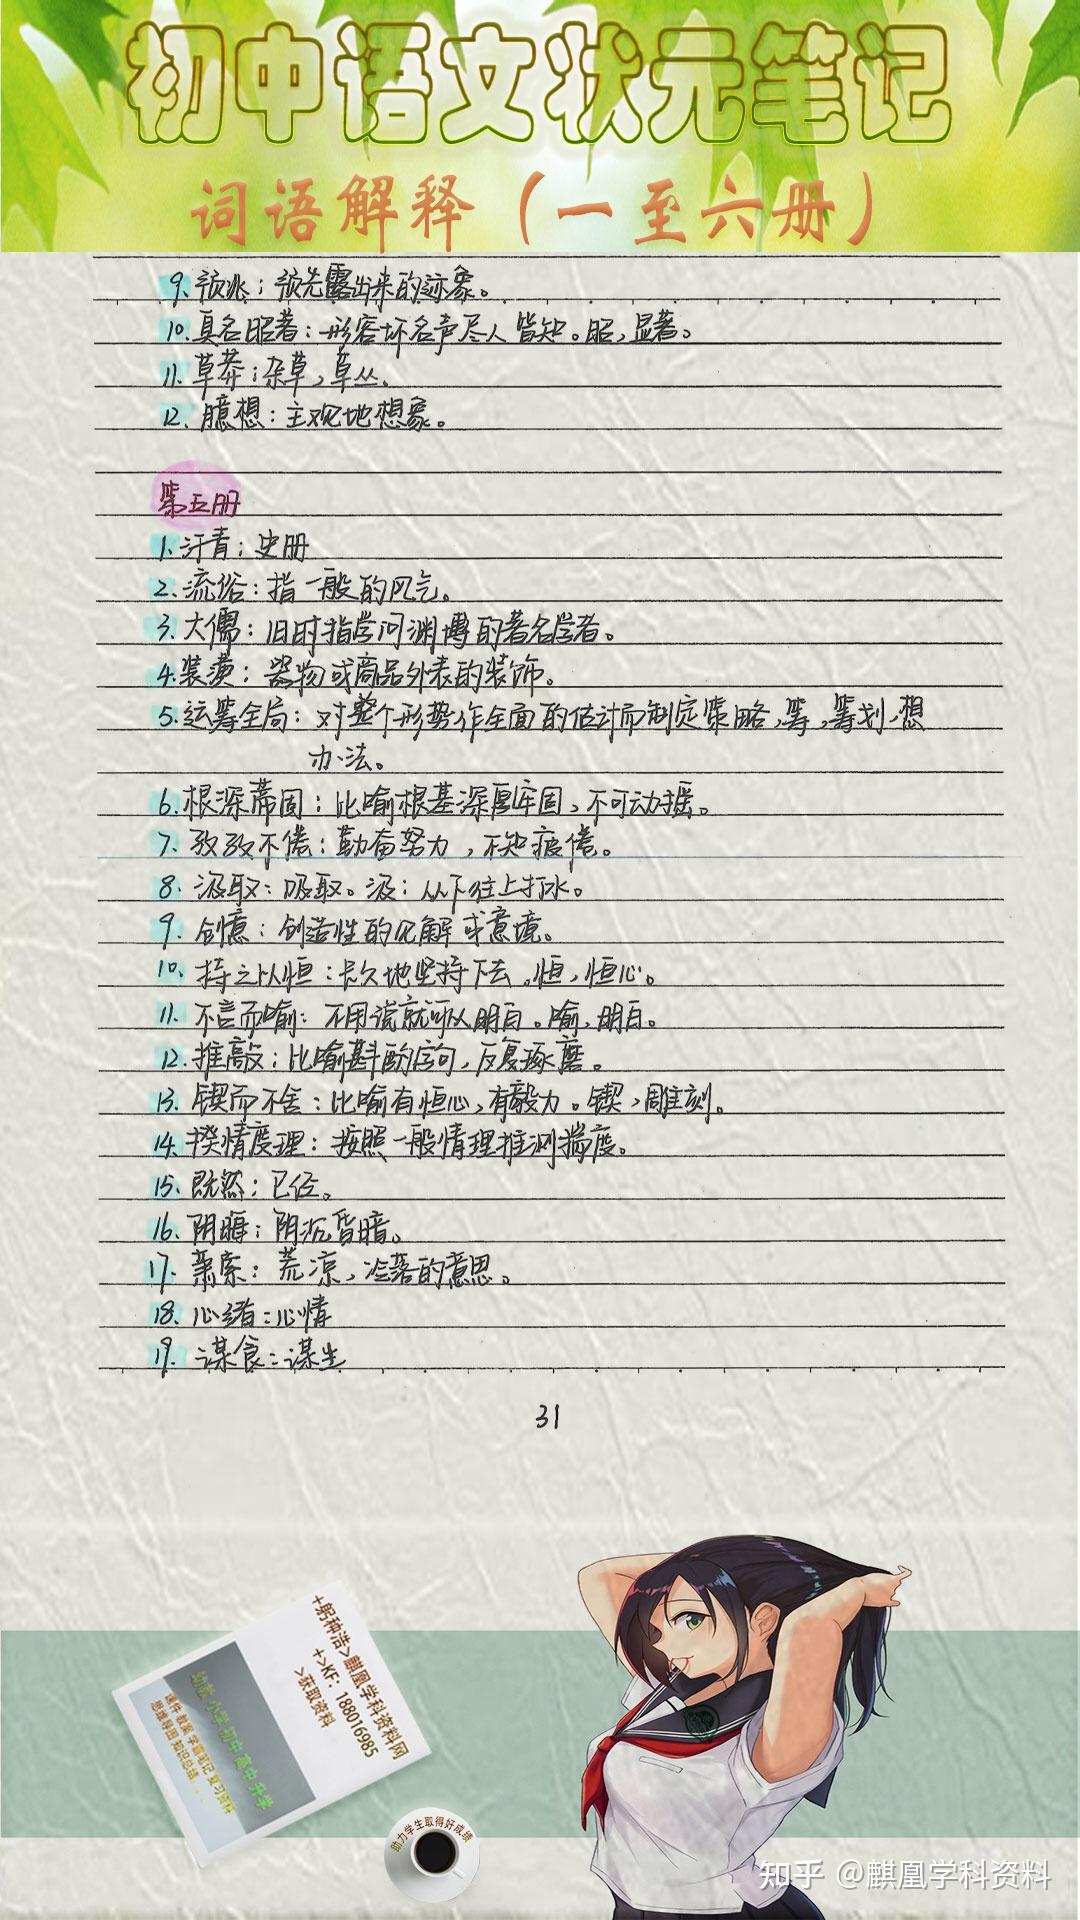 初中语文状元笔记
词语解释（一至六册）
9. 预兆：预先露出来的迹象。
10. 臭名昭著：形容坏名声尽人皆知。昭，显著。
11. 草莽：杂草，草丛。
12. 臆想：主观地想象。
第五册
1. 汗青：史册
2. 流俗：指一般的风气。
3. 大儒：旧时指学问渊博的著名学者。
4. 装潢：器物或商品外表的装饰。
5. 运筹全局：对整个形势作全面的估计而制定策略，筹，筹划，想
办法。
6. 根深蒂固：比喻根基深厚牢固，不可动摇。
7. 孜孜不倦：勤奋努力，不知疲倦。
8. 汲取：吸取。汲：从下往上打水。
9. 创意：创造性的见解或意境。
10. 持之以恒：长久地坚持下去。恒，恒心。
11. 不言而喻：不用说就可以明白。喻，明白。
12. 推敲：比喻斟酌字句，反复琢磨。
13. 锲而不舍：比喻有恒心，有毅力。锲，雕刻。
14. 揆情度理：按照一般情理推测揣度。
15. 既然：已经。
16. 阴晦：阴沉昏暗。
17. 萧索：荒凉，冷落的意思。
18. 心绪：心情
19. 谋食：谋生
31
+躬种浩>麒凰学科资料网
+>KF：188016985
>获取资料
幼教 小学 初中 高中 升学
课件 教案 学霸笔记 复习资料
思维导图 知识总结
助力学生取得好成绩
知乎 @麒凰学科资料